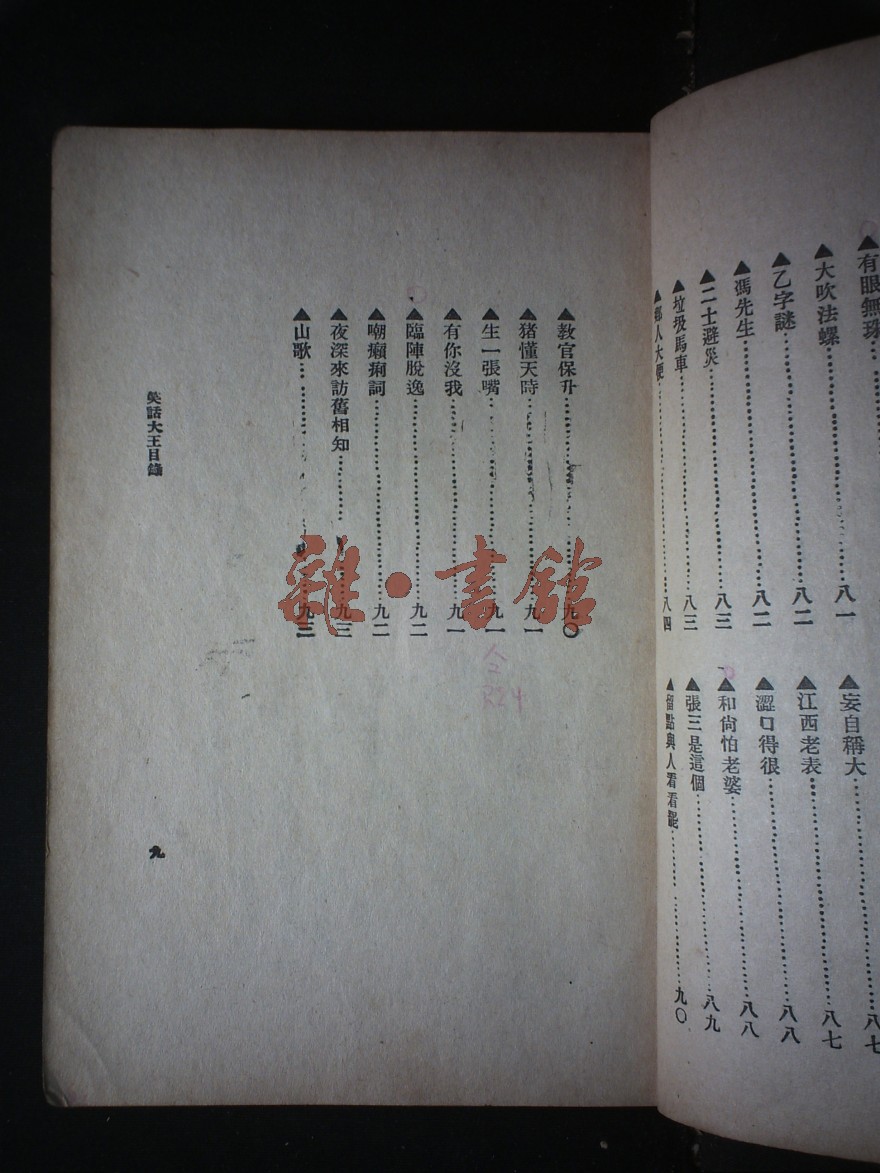 ▲有眼無珠
八一
▲大吹法螺
八二
▲乙字謎
八二
▲馮先生
八二
▲二士避災
八三
▲垃圾馬車
八三
▲鄉人大便
八四
▲妄自稱大
八七
▲江西老表
八七
▲澀口得很
八八
▲和尙怕老婆
八八
▲張三是這個
八九
▲留點與人看看罷
九〇
▲教官保升
九〇
▲猪懂天時
九一
▲生一張嘴
九一
▲有你沒我
九一
▲臨陣脫逸
九二
▲嘲癩痢詞
九二
▲夜深來訪舊相知
九三
▲山歌
九三
笑話大王目錄
九
雜·書舘
R24